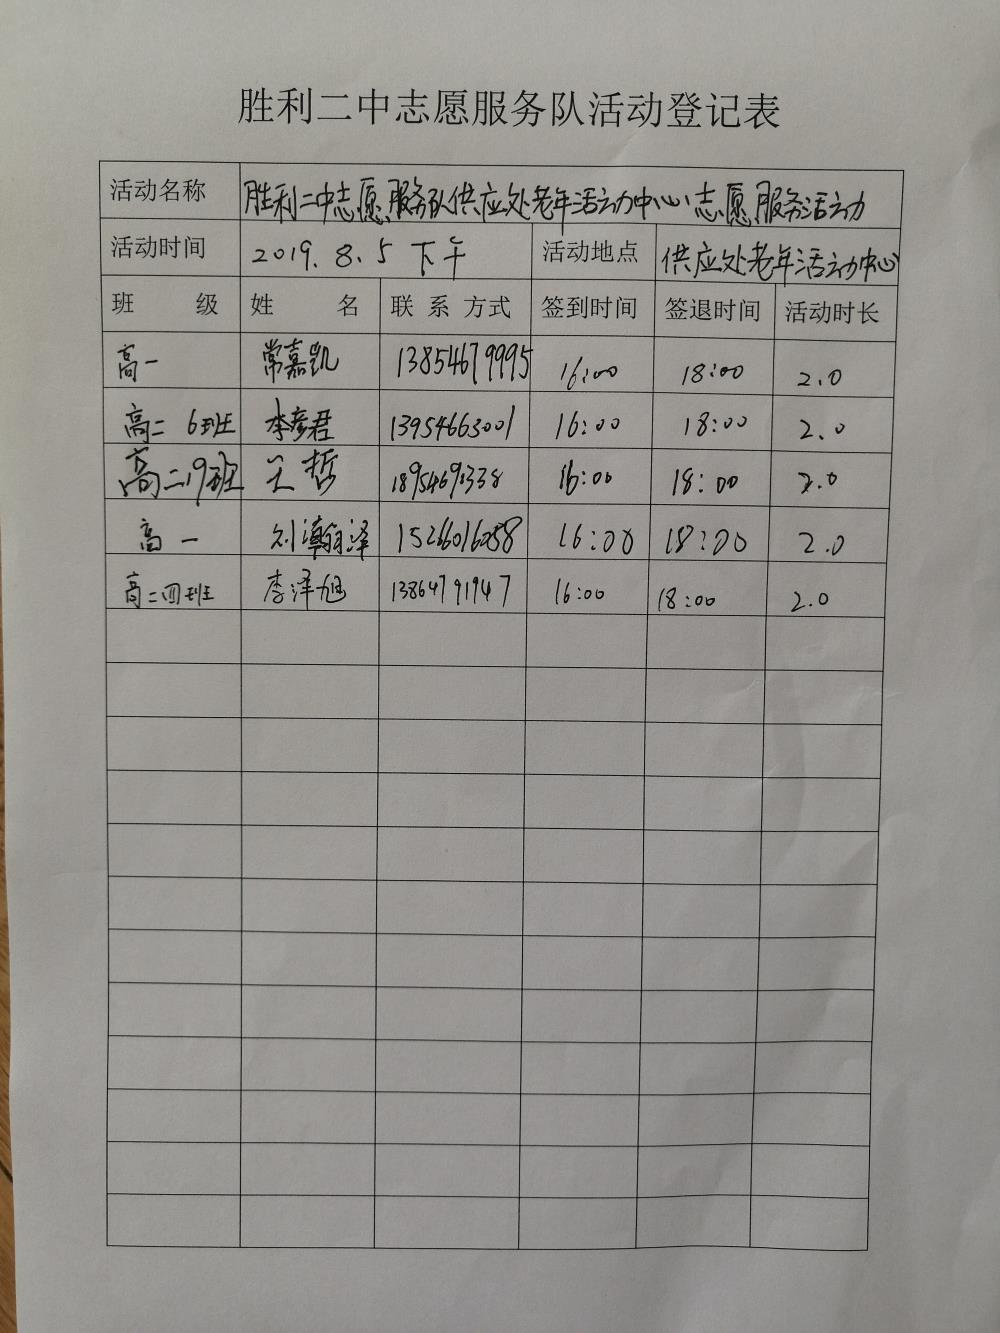 胜利二中志愿服务队活动登记表
活动名称 胜利二中志愿服务队供应处老年活动中心志愿服务活动
活动时间 2019.8.5 下午 活动地点 供应处老年活动中心
班 级 姓 名 联系方式 签到时间 签退时间 活动时长
高一 常嘉凯 13854679995 16:00 18:00 2.0
高二 6班 李彦君 13954663001 16:00 18:00 2.0
高二19班 王哲 16:00 18:00 2.0
高一 刘瀚泽 15266016058 16:00 18:00 2.0
高二四班 李泽旭 13864791947 16:00 18:00 2.0